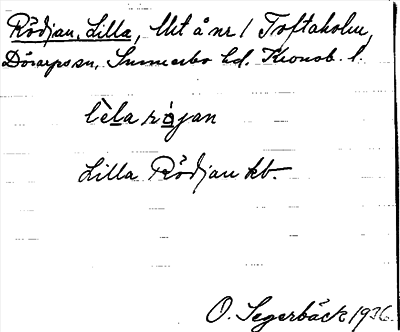 Rödjan, Lilla, Utt å nr 1 Toftaholm,
Dörarps sn, Sunnerbo hd. Kronob. l.
lela röjan
Lilla Rödjan kb.
O. Segerbäck 1936.